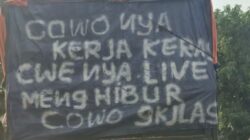 COWO NYA
KERJA KERA
CWE NYA LIVE
MENGHIBUR
COWO SKJLAS